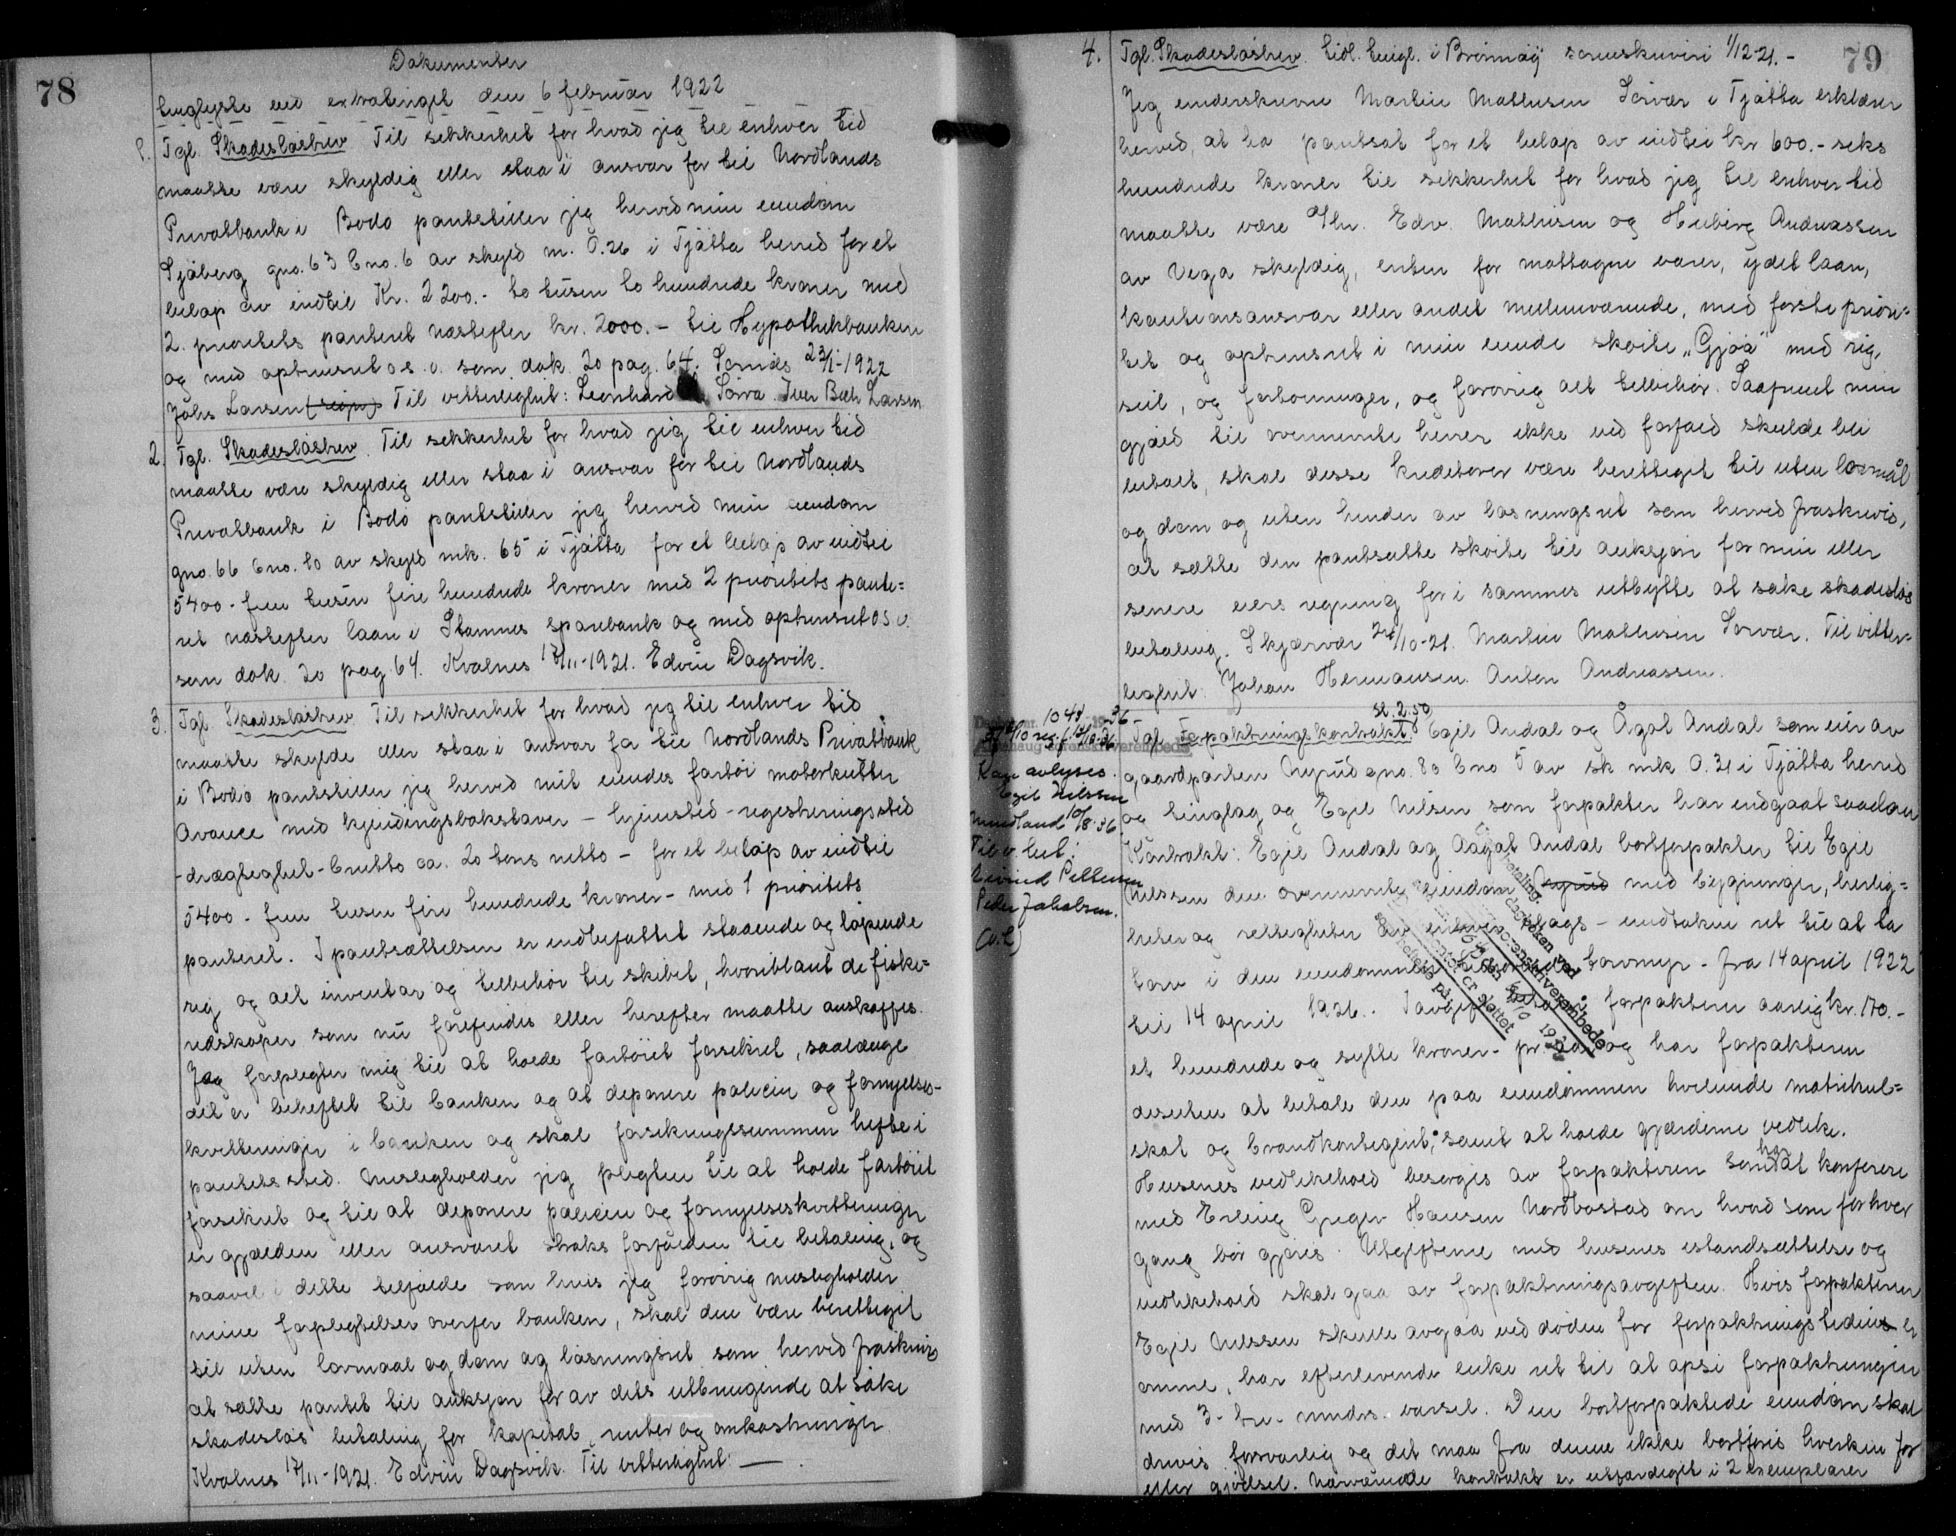 78
Dokumenter
tinglyste ved extratinget den 6 februar 1922
1. Tgl. Skadesløsbrev. Til sikkerhet for hvad jeg til enhver tid
maatte være skyldig eller staa i ansvar for til Nordlands
Privatbank i Bodø pantstiller jeg herved min eiendom
Sjøberg gno. 63 bno. 6 av skyld m. 0.26 i Tjøtta herred for et
beløp av indtil Kr. 2200.- to tusen to hundrede kroner med
2. prioritets panteret næstefter kr. 2000.- til Hypothekbanken
og med opträusret o.s.v. som dok. 20 pag. 64. Sørnes 23/1-1922
Johs Larsen (sign) Til vitterlighet: Leonhard Sørra. Iver Bech Larsen
2. Tgl. Skadesløsbrev. Til sikkerhet for hvad jeg til enhver tid
maatte være skyldig eller staa i ansvar for til Nordlands
Privatbank i Bodø pantstiller jeg herved min eiendom
gno. 66 bno. 10 av skyld mk. 65 i Tjøtta for et beløp av indtil
5400- fem tusen fire hundrede kroner med 2 prioritets pante=
ret næstefter laan i Stamnes sparebank og med optrinsret osv.
som dok. 20 pag. 64. Kvalnes 17/11-1921. Edvin Dagsvik.
3. Tgl. Skadesløsbrev. Til sikkerhet for hvad jeg til enhver tid
maatte skylde eller staa i ansvar for til Nordlands Privatbank
i Bodø pantstiller jeg herved mit eiendes fartøi motorkutter
Avance med kjendingsbokstaver - hjemsted - registreringssted
- drægtighet - brutto ca. 20 tons netto - for et beløp av indtil
5400 - fem tusen fire hundrede kroner - med 1 prioritets
panteret. I pantsættelsen er indbefattet staaende og løpende
rig og alt inventar og tilbehør til skibet, hvoriblant de fiske=
redskaper som nu forefindes eller herefter maatte anskaffes.
Jeg forplegter mig til at holde fartøiet forsikret, saalænge
det er beheftet til banken og at deponere policen og fornyelses-
kvitteringer i banken og skal forsikringssummen hefte i
pantets sted. Misligholder jeg plegten til at holde fartøiet
forsikret og til at deponere policen og fornyelseskvitteringer
er gjælden eller ansvaret straks forfalden til betaling, og
saavel i dette tilfælde som hvis jeg forøvrig misligholder
mine forplegtelser overfor banken, skal den være berettiget
til uten lovmaal og dom og løsningsret som herved fraskrives
at sætte pantet til auksjon for av dets utbringende at søke
skadesløs betaling for kapital, renter og omkostninger.
Kvalnes 17/11-1921. Edvin Dagsvik. Til vitterlighet: —.
79
4. Tgl. Skadesløsbrev. tidl. tingl. i Brønnøy sorenskriveri 1/12-21.-
Jeg underskrevne Martin Mathisen Sørvær i Tjøtta erklærer
herved, at ha pantsat for et beløp av indtil kr 600.- seks
hundrede kroner til sikkerhet for hvad jeg til enhver tid
maatte være Hr. Edv. Mathisen og Andreassen
av Vega skyldig, enten for mottagne varer, ydet laan,
kautionsansvar eller andet mellemværende, med første priori=
tet og optrinsret i min eiende skøite "Gjøa" med rig,
seil, og fortøininger, og forøvrig alt tilbehør. Saafremt min
gjæld til ovennevnte herrer ikke ved forfald skulde bli
betalt, skal disse kreditorer være berettiget til uten lovmål
og dom og uten hinder av løsningsret som herved fraskrives,
at sætte den pantsatte skøite til auksjon for min eller
senere eiers regning for i sammes utbytte at søke skadesløs
betaling. Skjærvær 24/10-21. Martin Mathisen Sørvær. Til vitter-
lighet: Johan Hermansen. Anton Andreassen.
st. 2.50
Tgl. Forpaktningskontrakt. Egil Andal og Ågot Andal som eier av
gaardparten Nyrud gno. 80 bno 5 av sk mk 0.31 i Tjøtta herred
og tinglag og Egil Nilsen som forpakter har indgaat saadan
Kontrakt: Egil Andal og Aagot Andal bortforpakter til Egil
Nilssen den ovennevnte eiendom Nyrud med bygninger, herlig=
heter og rettigheter av enhver slags - undtaken ret til at ta
torv i den eiendommen torvmyr - fra 14 april 1922
til 14 april 1926. I avgift betaler forpakteren aarlig kr. 170.-
et hundrede og sytti kroner - pr. aar og har forpakteren
desuten at betale den paa eiendommen hvilende matrikul=
skat og brandkontegent, samt at holde gjærderne vedlike.
Husenes vedlikehold besørges av forpakteren som har at konferere
med Erling Greger Hansen Nordbostad om hvad som for hver
gang bør gjøres. Utgifterne med husenes istandsættelse og
vedlikehold skal gaa av forpaktningsavgiften. Hvis forpakteren
Egil Nilssen skulle avgaa ved døden før forpaktningstiden er
omme, har efterlevende enke ret til at opsi forpaktningen
med 3 - tre - mndrs. varsel. Den bortforpaktede eiendom skal
drives forsvarlig og det maa fra denne ikke bortføres hverken for
eller gjødsel. Nærværende kontrakt er utfærdiget i 2 exemplarer
1048 1936
Kan avlyses.
Egil Nilssen
10/8-36.
Til v. het:
Eivind Pettersen
Peder Jakobsen.